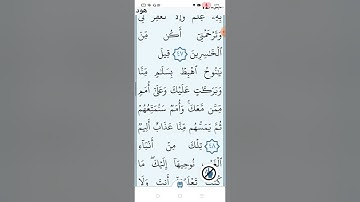 هود
بِهِۦ عِلْمٌ وَإِلَّا تَغْفِرْ لِي
وَتَرْحَمْنِيٓ أَكُن مِّنَ
ٱلْخَٰسِرِينَ ﴿٤٧﴾ قِيلَ
يَٰنُوحُ ٱهْبِطْ بِسَلَٰمٍ مِّنَّا
وَبَرَكَٰتٍ عَلَيْكَ وَعَلَىٰٓ أُمَمٍ
مِّمَّن مَّعَكَ ۚ وَأُمَمٌ سَنُمَتِّعُهُمْ
ثُمَّ يَمَسُّهُم مِّنَّا عَذَابٌ أَلِيمٌ
﴿٤٨﴾ تِلْكَ مِنْ أَنۢبَآءِ
نُوحِيهَآ إِلَيْكَ ۖ مَا
كُنتَ تَعْلَمُهَآ أَنتَ وَلَا